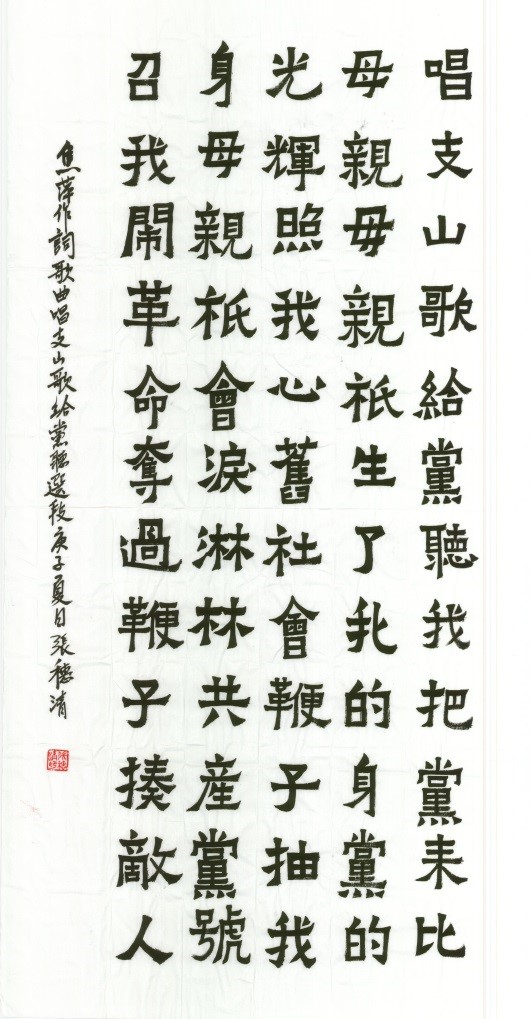 唱支山歌給黨聽我把黨来比
母親母親祇生了我的身黨的
光輝照我心舊社會鞭子抽我
身母親祇會淚淋林共産黨號
召我鬧革命奪過鞭子揍敵人
焦萍作詞歌曲唱支山歌给黨聽選段庚子夏日張穗清